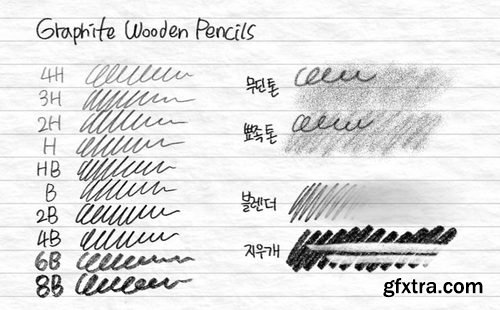 Graphite Wooden Pencils
4H
3H
2H
H
HB
B
2B
4B
6B
8B
무딘톤
뾰족톤
블렌더
지우개
gfxtra.com